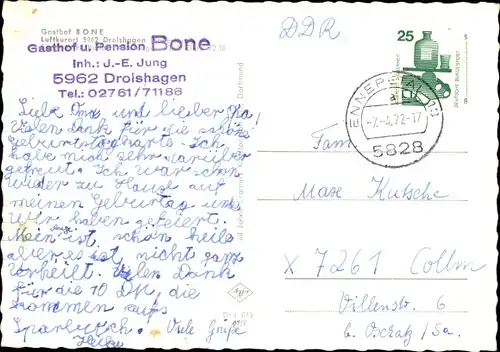 Gasthof BONE
Luftkurort 5962 Drolshagen
Gasthof u. Pension Bone
Inh.: J.-E. Jung
5962 Drolshagen
Tel.: 02761/71186
Liebe Oma und lieber Opa!
Vielen Dank für die schöne
Geburtstagskarte. Ich
habe mich sehr darüber
gefreut. Ich war schon
wieder zu Hause auf
meinen Geburtstag und
wir haben gefeiert.
Mein ist schön heile
aber es ist nicht ganz
verheilt. Vielen Dank
für die 10 DM, die
kommen aufs
Sparbuch. Viele Grüße
DDR
25
DEUTSCHE BUNDESPOST
ENNEPETAL 13
-7.-4.72-17
5828
Fam
Max Kutsche
X 7261 Collm
Villenstr. 6
b. Oschatz/Sa.
Dortmund